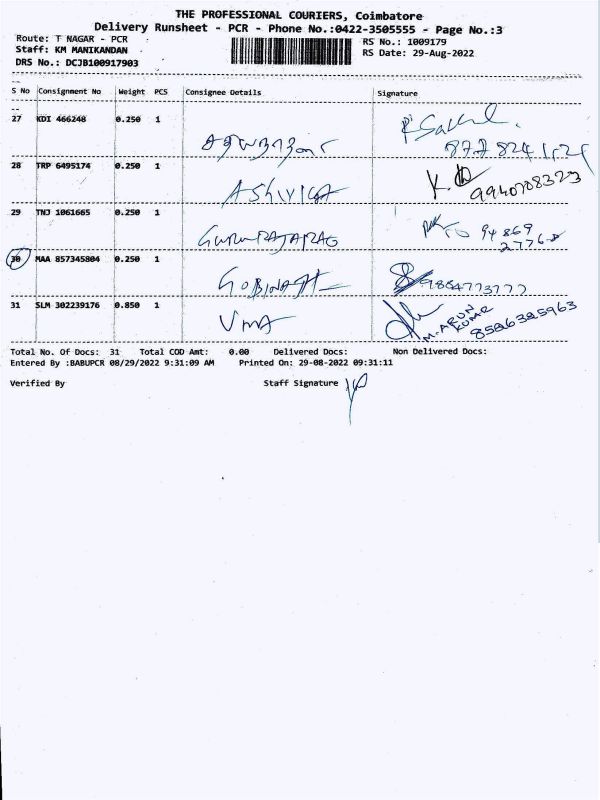 THE PROFESSIONAL COURIERS, Coimbatore
Delivery Runsheet - PCR - Phone No.:0422-3505555 - Page No.:3
Route: T NAGAR - PCR
RS No.: 1009179
Staff: KM MANIKANDAN
RS Date: 29-Aug-2022
DRS No.: DCJB100917903
S No Consignment No Weight PCS Consignee Details Signature
27 KDI 466248 0.250 1
28 TRP 6495174 0.250 1 ASHVIGA 9940708323
29 TNJ 1061665 0.250 1 GURURAJARAO 94869
27768
30 MAA 857345804 0.250 1 GOBINATH 9884773777
31 SLM 302239176 0.850 1 UMA M. ARUN
KUMR 8526325963
Total No. Of Docs: 31 Total COD Amt: 0.00 Delivered Docs: Non Delivered Docs:
Entered By :BABUPCR 08/29/2022 9:31:09 AM Printed On: 29-08-2022 09:31:11
Verified By Staff Signature